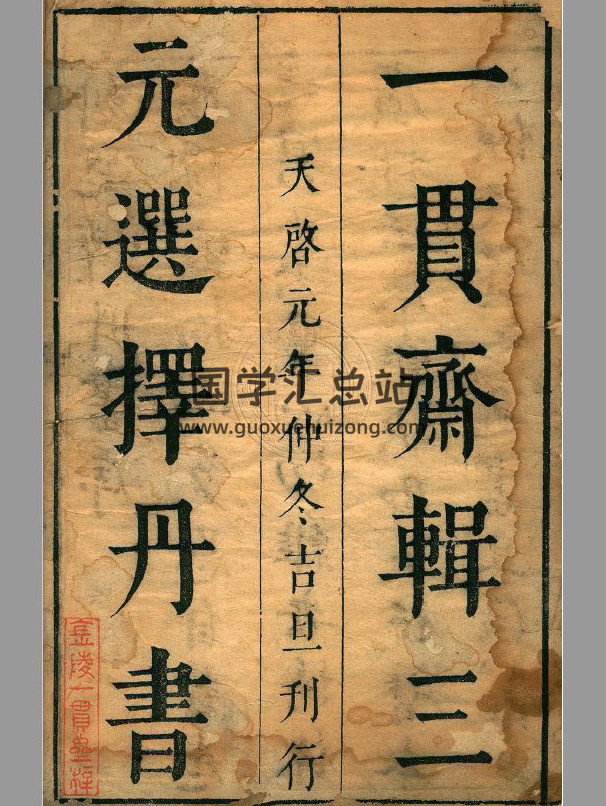 一貫齋輯三
天啓元年仲冬吉旦刊行
元選擇丹書
国学汇总站
www.guoxuehuizong.com
金陵一貫齋梓